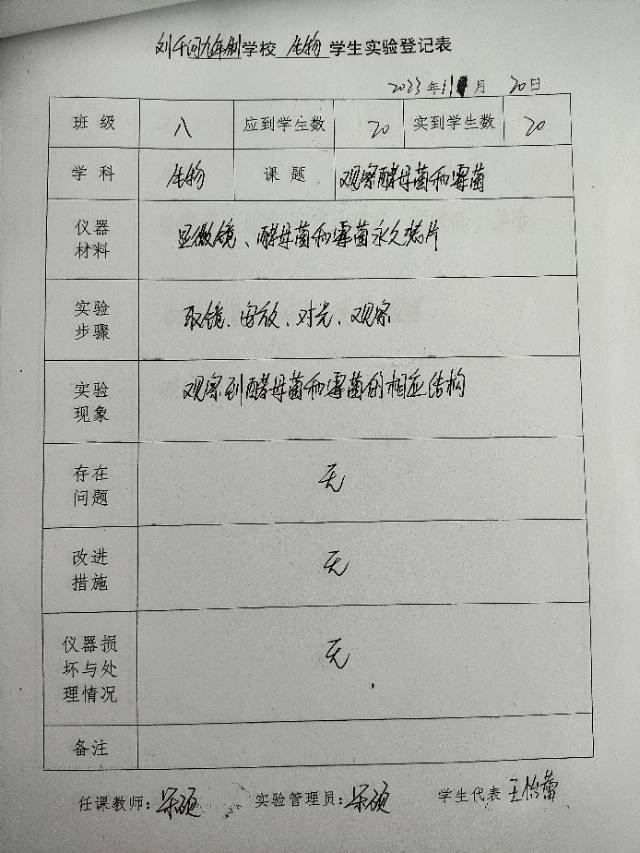 刘千同九年制学校 生物 学生实验登记表
2023年11月20日
班级 八 应到学生数 20 实到学生数 20
学科 生物 课题 观察酵母菌和霉菌
仪器材料 显微镜、酵母菌和霉菌永久装片
实验步骤 取镜、安放、对光、观察
实验现象 观察到酵母菌和霉菌的相应结构
存在问题 无
改进措施 无
仪器损坏与处理情况 无
备注
任课教师: 实验管理员: 学生代表 王怡蕾